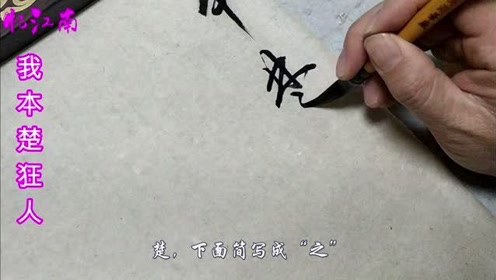 忆江南
我本楚狂人
楚，下面简写成“之”